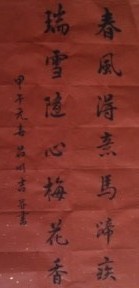 春風得意馬蹄疾
瑞雪隨心梅花香
甲午元春